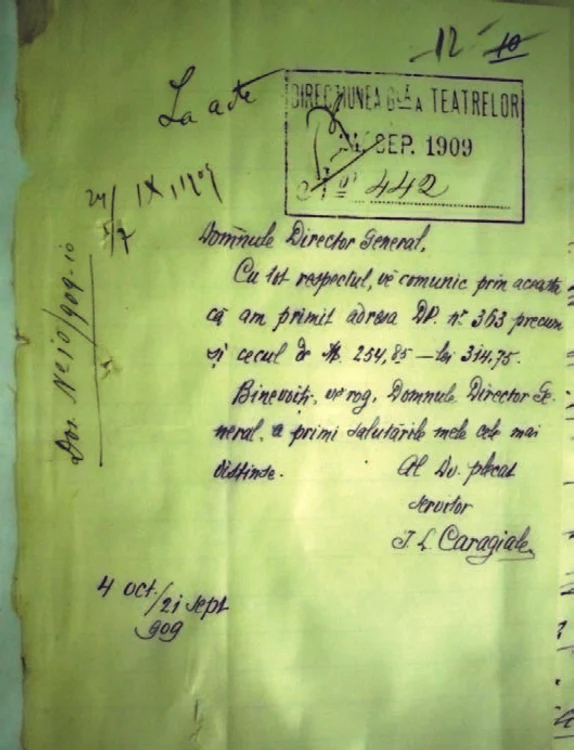 12 10
La acte
DIRECȚIUNEA G-LĂ A TEATRELOR
SEP. 1909
No 442
24/IX 1909
Dos. No 10/909-10
Domnule Director General,
Cu tot respectul, vĕ comunic prin aceasta
că am primit adresa DV. nr. 363 precum
și cecul de M. 254,85 — lei 314,75.
Binevoiți, vĕ rog, Domnule Director Ge-
neral, a primi salutările mele cele mai
distinse.
Al Dv. plecat
servitor
I. L. Caragiale
4 Oct./21 Sept
909